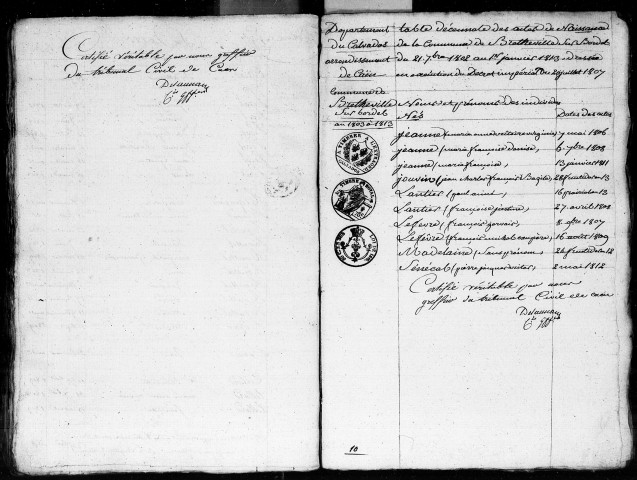 Certifié véritable par nous greffier
du tribunal Civil de Caen
Desaunay
Departement
du Calvados
arrondissement
de Caen
commune de
Bretteville
sur bordel
an 1803 à 1813
table décennale des actes de Naissance
de la Commune de Bretteville sur Bordel
du 21 7bre 1802 au 1er janvier 1813 dressée
en exécution du Decret impérial du 20 juillet 1807
Noms et prénoms des individus
Nés
Dates des actes
jeanne (maria 7 mai 1806
jeanne (marie françoise 6 9bre 1808
jeanne (marie françoise) 13 janvier 1811
jouvin (jean charles françois Bazile) 28 fructidor 13
Lantier (paul aimé) 16 prairial an 13
Lantier (françoise justine) 27 avril 1808
Lefèvre (françois gervais) 8 1807
Lefèvre (françois michel 16 août 1809
Madelaine (sans prénom) 24 fructidor 12
Sénécal (pierre jacques victor) 2 mai 1812
Certifié véritable par nous
greffier du tribunal Civil de Caen
Desaunay
10